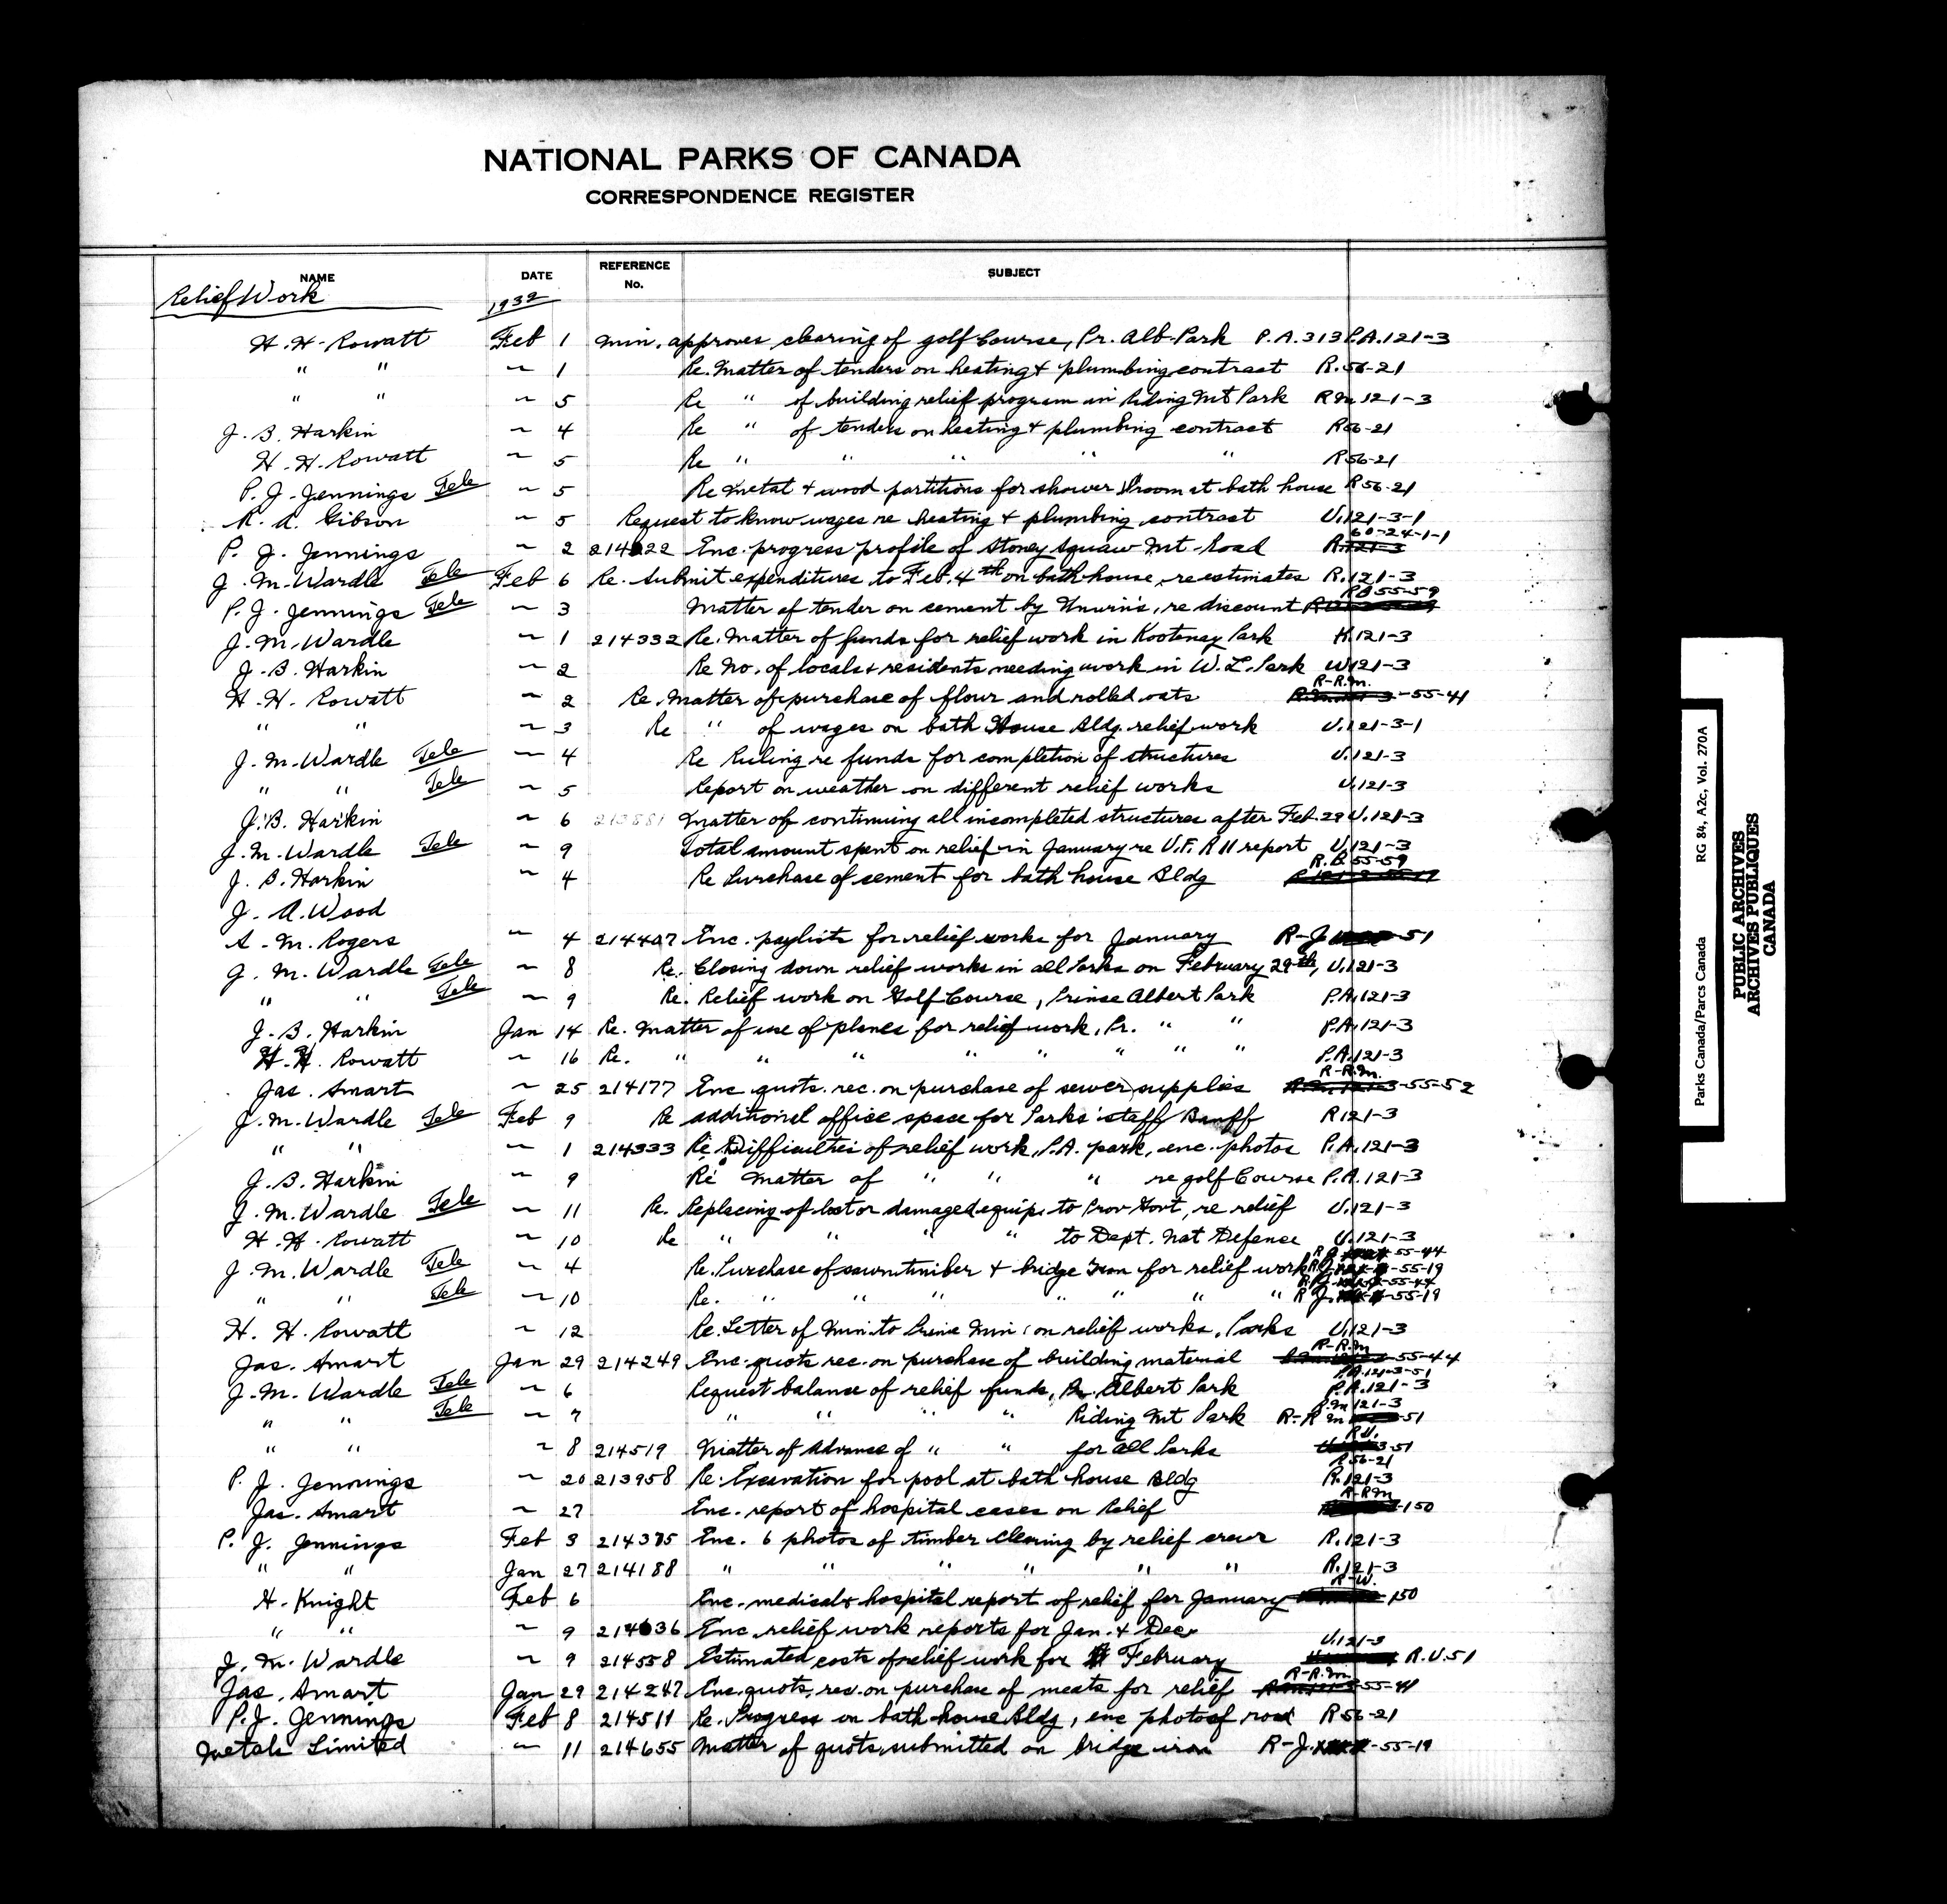 NATIONAL PARKS OF CANADA
CORRESPONDENCE REGISTER
NAME DATE REFERENCE No. SUBJECT
Relief Work 1932
H. H. Rowatt Feb 1 Min. approves clearing of golf Course, Pr. Alb. Park P.A. 313 P.A. 121-3
" " ~ 1 Re. Matter of tenders on heating & plumbing contract R. 56-21
" " ~ 5 Re " of building relief program in Riding Mt Park R M 121-3
J. B. Harkin ~ 4 Re " of tenders on heating & plumbing contract R 56-21
H. H. Rowatt ~ 5 Re " " " " " R 56-21
P. J. Jennings Tele ~ 5 Re metal & wood partitions for shower room at bath house R 56-21
R. A. Gibson ~ 5 Request to know wages re heating & plumbing contract U. 121-3-1
P. J. Jennings ~ 2 214222 Enc. progress profile of Stoney Squaw Mt. Road R. 121-3 60-24-1-1
J. M. Wardle Tele Feb 6 Re. Submit expenditures to Feb. 4th on bath house, re estimates R. 121-3
P. J. Jennings Tele ~ 3 Matter of tender on cement by Unwin's, re discount RB 55-59
J. M. Wardle ~ 1 214332 Re. Matter of funds for relief work in Kootenay Park K. 121-3
J. B. Harkin ~ 2 Re No. of locals & residents needing work in W. L. Park W 121-3
H. H. Rowatt ~ 2 Re. Matter of purchase of flour and rolled oats R-R.M. -55-41
" " ~ 3 Re " of wages on bath House Bldg. relief work U. 121-3-1
J. M. Wardle Tele ~ 4 Re Ruling re funds for completion of structures U. 121-3
" " Tele ~ 5 Report on weather on different relief works U. 121-3
J. B. Harkin ~ 6 213881 Matter of continuing all incompleted structures after Feb. 29 U. 121-3
J. M. Wardle Tele ~ 9 Total amount spent on relief in January re U.F.R 11 report U. 121-3
J. B. Harkin ~ 4 Re Purchase of cement for bath house Bldg R. B. 55-59
J. A. Wood
S. M. Rogers ~ 4 214407 Enc. paylists for relief works for January R-J -51
J. M. Wardle Tele ~ 8 Re. Closing down relief works in all Parks on February 29th, U. 121-3
" " Tele ~ 9 Re. Relief work on Golf Course, Prince Albert Park P.A. 121-3
J. B. Harkin Jan 14 Re. Matter of use of planes for relief work, Pr. " " P.A. 121-3
H. H. Rowatt ~ 16 Re. " " " " " " " " P.A. 121-3
Jas. Smart ~ 25 214177 Enc quots. rec. on purchase of sewer supplies R-R.M. -55-52
J. M. Wardle Tele Feb 9 Re additional office space for Parks' staff Banff R 121-3
" " ~ 1 214333 Re Difficulties of relief work, P.A. park, enc. photos P.A. 121-3
J. B. Harkin ~ 9 Re Matter of " " " re golf Course P.A. 121-3
J. M. Wardle Tele ~ 11 Re. Replacing of lost or damaged equip. to Prov Govt, re relief U. 121-3
H. H. Rowatt ~ 10 Re " " " " to Dept. Nat Defense U. 121-3
J. M. Wardle Tele ~ 4 Re. Purchase of sawn timber & bridge Iron for relief work -55-44 -55-19
" " Tele ~ 10 Re. " " " " " " " -55-44 R J. -55-19
H. H. Rowatt ~ 12 Re. Letter of Min. to Prime Min. on relief works, Parks U. 121-3
Jas. Smart Jan 29 214249 Enc. quots rec. on purchase of building material R-R.M -55-44
J. M. Wardle Tele ~ 6 Request balance of relief funds, Pr. Albert Park P.A. 121-3-51 P.A. 121-3
" " Tele ~ 7 " " " " Riding Mt Park R.M 121-3 R-R M -51
" " ~ 8 214519 Matter of Advance of " " for all Parks R U. -51
P. J. Jennings ~ 20 213958 Re. Excavation for pool at bath house Bldg R 56-21 R. 121-3
Jas. Smart ~ 27 Enc. report of hospital cases on Relief R-R M -150
P. J. Jennings Feb 3 214375 Enc. 6 photos of timber clearing by relief crews R. 121-3
" " Jan 27 214188 " " " " " " R. 121-3
H. Knight Feb 6 Enc. medical & hospital report of relief for January R-W. -150
" " ~ 9 214636 Enc. relief work reports for Jan. & Dec.
J. M. Wardle ~ 9 214558 Estimated costs of relief work for February U. 121-3 R.U. 51
Jas. Smart Jan 29 214247 Enc. quots. rec. on purchase of meats for relief R-R.M. 55-41
P. J. Jennings Feb 8 214511 Re. Progress on bath house Bldg, enc photos of road R 56-21
Metals Limited ~ 11 214655 Matter of quots. submitted on bridge iron R-J. -55-19
Parks Canada/Parcs Canada RG 84, A2c, Vol. 270A
PUBLIC ARCHIVES
ARCHIVES PUBLIQUES
CANADA